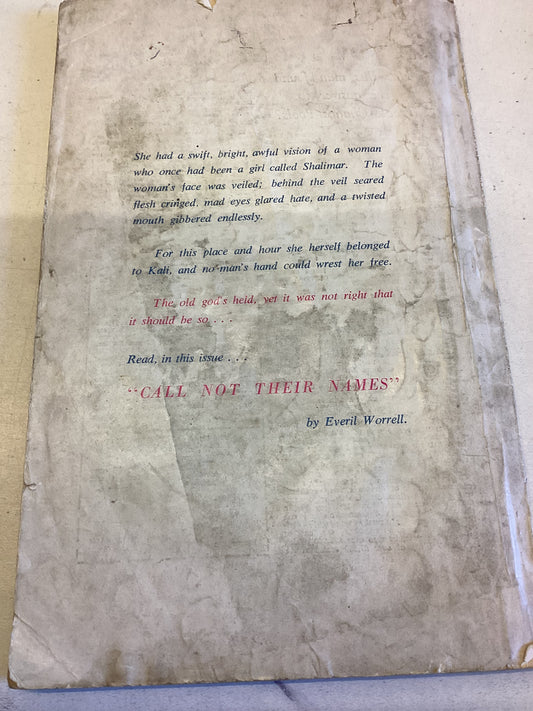 She had a swift, bright, awful vision of a woman
who once had been a girl called Shalimar. The
woman's face was veiled; behind the veil seared
flesh cringed, mad eyes glared hate, and a twisted
mouth gibbered endlessly.
For this place and hour she herself belonged
to Kali, and no man's hand could wrest her free.
The old god's held, yet it was not right that
it should be so . . .
Read, in this issue . . .
"CALL NOT THEIR NAMES"
by Everil Worrell.